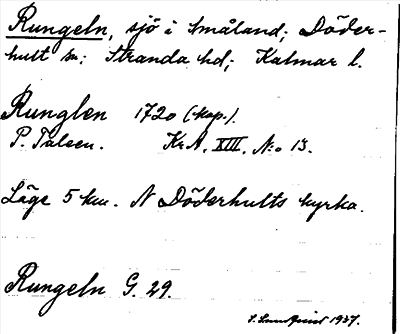 Rungeln, sjö i Småland; Döder-
hult sn; Stranda hd; Kalmar l.
Runglen 1720 (kop.).
P. Palsen. Kr.A. XIII, N:o 13.
Läge 5 km. N Döderhults kyrka.
Rungeln G. 29.
1937.